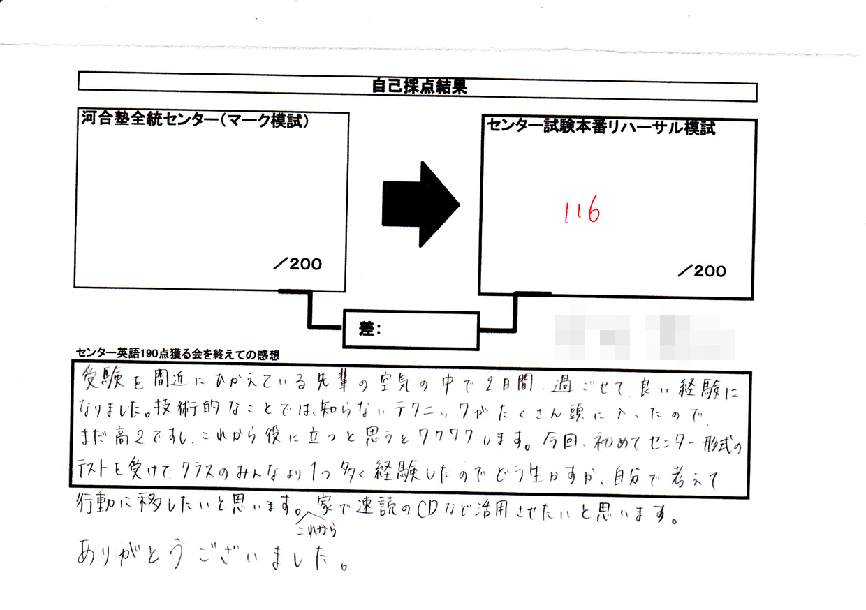 自己採点結果
河合塾全統センター(マーク模試)
センター試験本番リハーサル模試
116
/200
/200
差:
センター英語190点獲る会を終えての感想
受験を間近にひかえている先輩の空気の中で2日間、過ごせて、良い経験に
なりました。技術的なことでは、知らないテクニックがたくさん頭に入ったので、
まだ高2ですし、これから役に立つと思うとワクワクします。今回、初めてセンター形式の
テストを受けて、クラスのみんなより1つ多く経験したのでどう生かすか、自分で考えて
行動に移したいと思います。家で速読のCDなど活用させたいと思います。
これから
ありがとうございました。